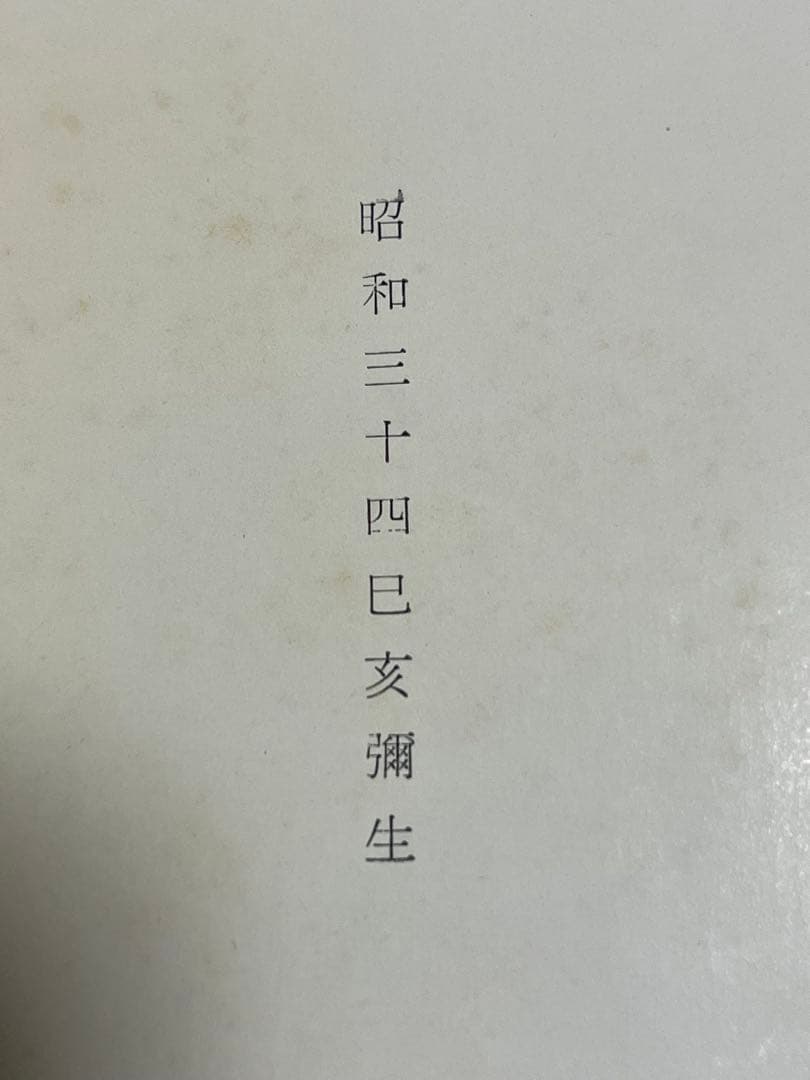 昭和三十四巳亥彌生